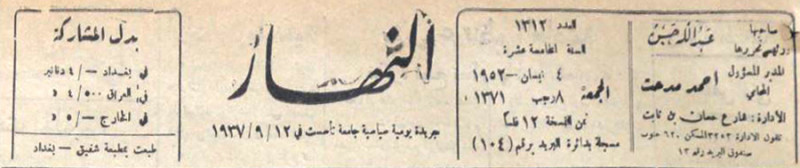 صاحبها
ورئيس تحريرها
عبدالله حسن
المدير المسؤول
المحامي
احمد مدحت
الأدارة : شارع حسان بن ثابت
تلفون الادارة ٣٢٥٣ المسكن ٦٢٠ جنوب
صندوق البريد رقم ١٣
العدد ١٣١٢
السنة الخامسة عشرة
الجمعة
٤ نيسان – ١٩٥٢
٨ رجب ١٣٧١
ثمن النسخة ١٢ فلساً
مسجلة بدائرة البريد برقم (١٠٤)
النهار
جريدة يومية سياسية جامعة تأسست في ١٢/٩/١٩٣٧
بدل المشاركة
في بغداد –/٤ دنانير
في العراق ٥٠٠/٤ د
في الخارج –/٥ د
طبعت بمطبعة شفيق – بغداد